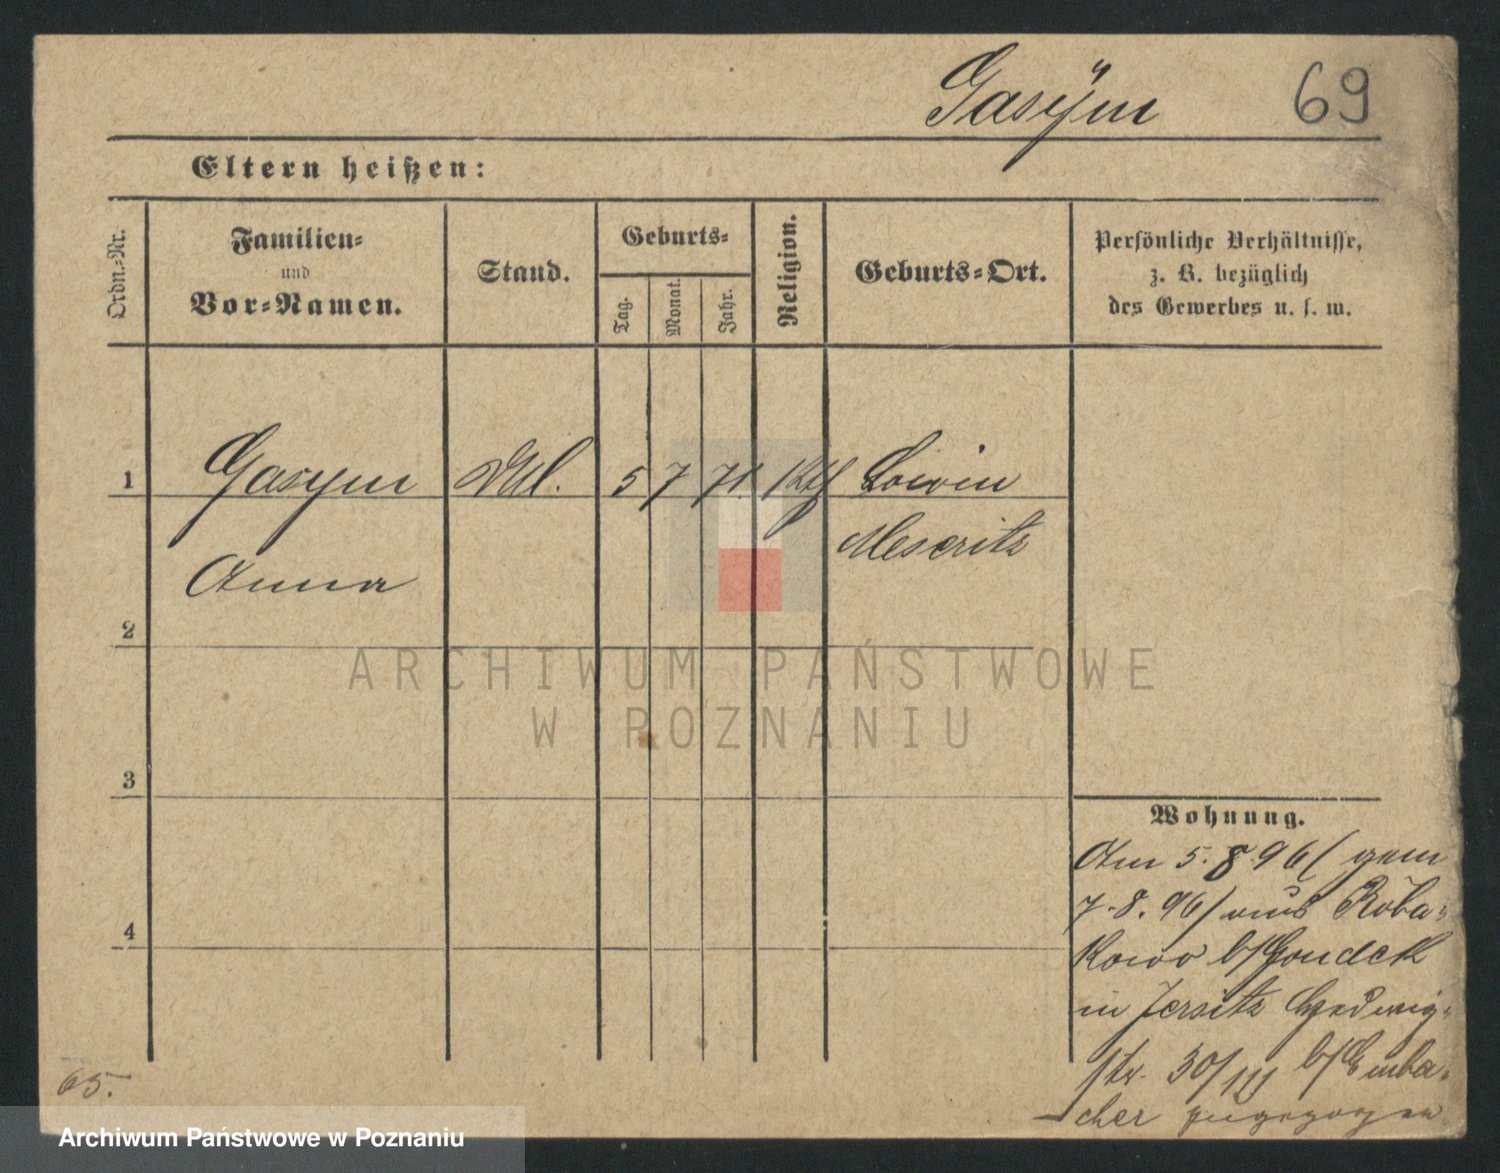 Gasÿm 69
Eltern heißen:
Ordn.-Nr.
Familien-
und
Vor-Namen.
Stand.
Geburts-
Tag.
Monat.
Jahr.
Religion.
Geburts-Ort.
Persönliche Verhältnisse,
z. B. bezüglich
des Gewerbes u. s. w.
1 Gasym 5 7 71 Kth Lowin
Meseritz
Anna
2
ARCHIWUM PAŃSTWOWE
W POZNANIU
3
Wohnung.
Am 5. 8. 96 ( gem
7. 8. 96 ) aus Roba-
kowo b/ Gondek
4
in Jersitz Hedwig-
str. 30/III b/ Emba-
cher zugezogen
65.
Archiwum Państwowe w Poznaniu